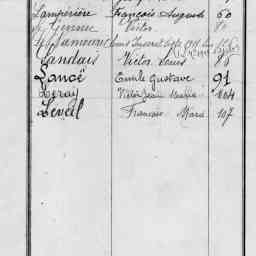 Lamperière François Auguste 60
Le Gennic Victor 80
Le Lamour
Landais Victor Louis 86
Lancé Emile Gustave 91
Leray Victor Jean Marie 104
Leveil François Marie 107